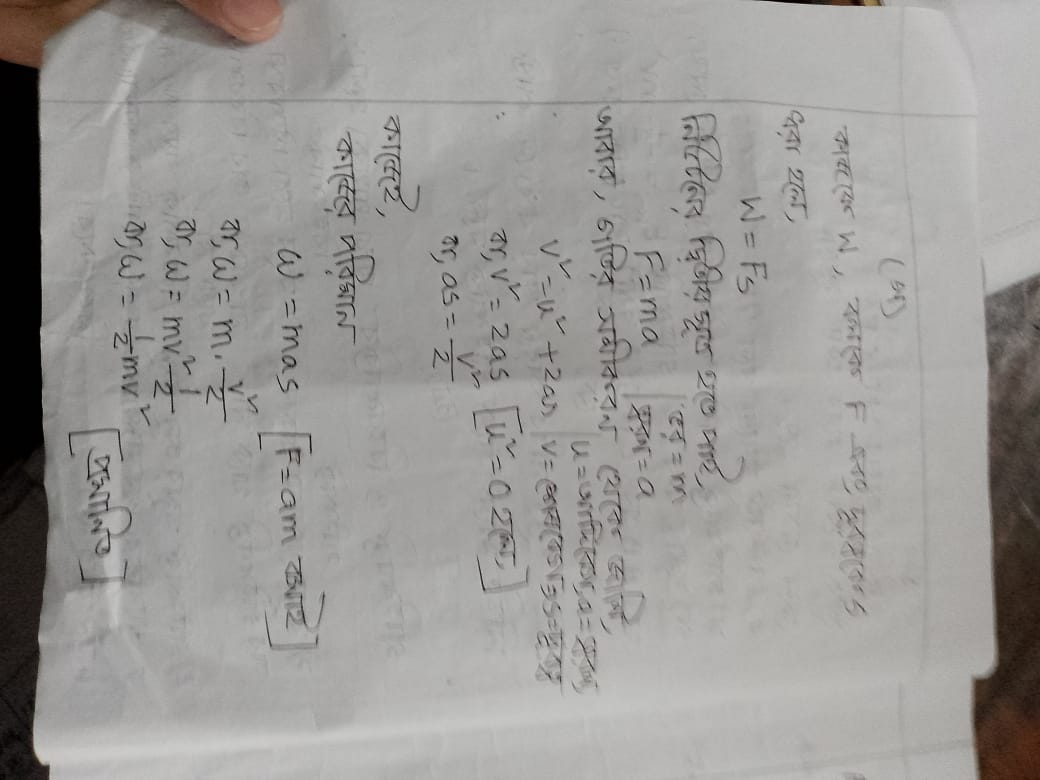 (গ)
কাজকে W, বলকে F এবং দূরত্বকে S
ধরা হলে,
W = Fs
নিউটনের দ্বিতীয় সূত্র হতে পাই,
F = ma | ভর = m ত্বরণ = a
আবার, গতির সমীকরণ থেকে জানি,
v² = u² + 2as | u = আদিবেগ, a = ত্বরণ v = শেষবেগ, s = দূরত্ব
বা, v² = 2as [u² = 0 হলে]
বা, as = v²/2
কাজেই,
কাজের পরিমাণ
W = mas [F = am বলে]
বা, W = m. v²/2
বা, W = mv² 1/2
বা, W = 1/2 mv²
[প্রমাণিত]